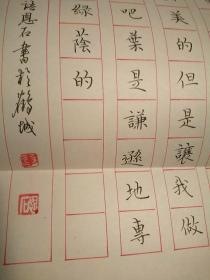 美的但是讓我做
吧葉是謙遜地專
綠蔭的
語恩石書於鶴城